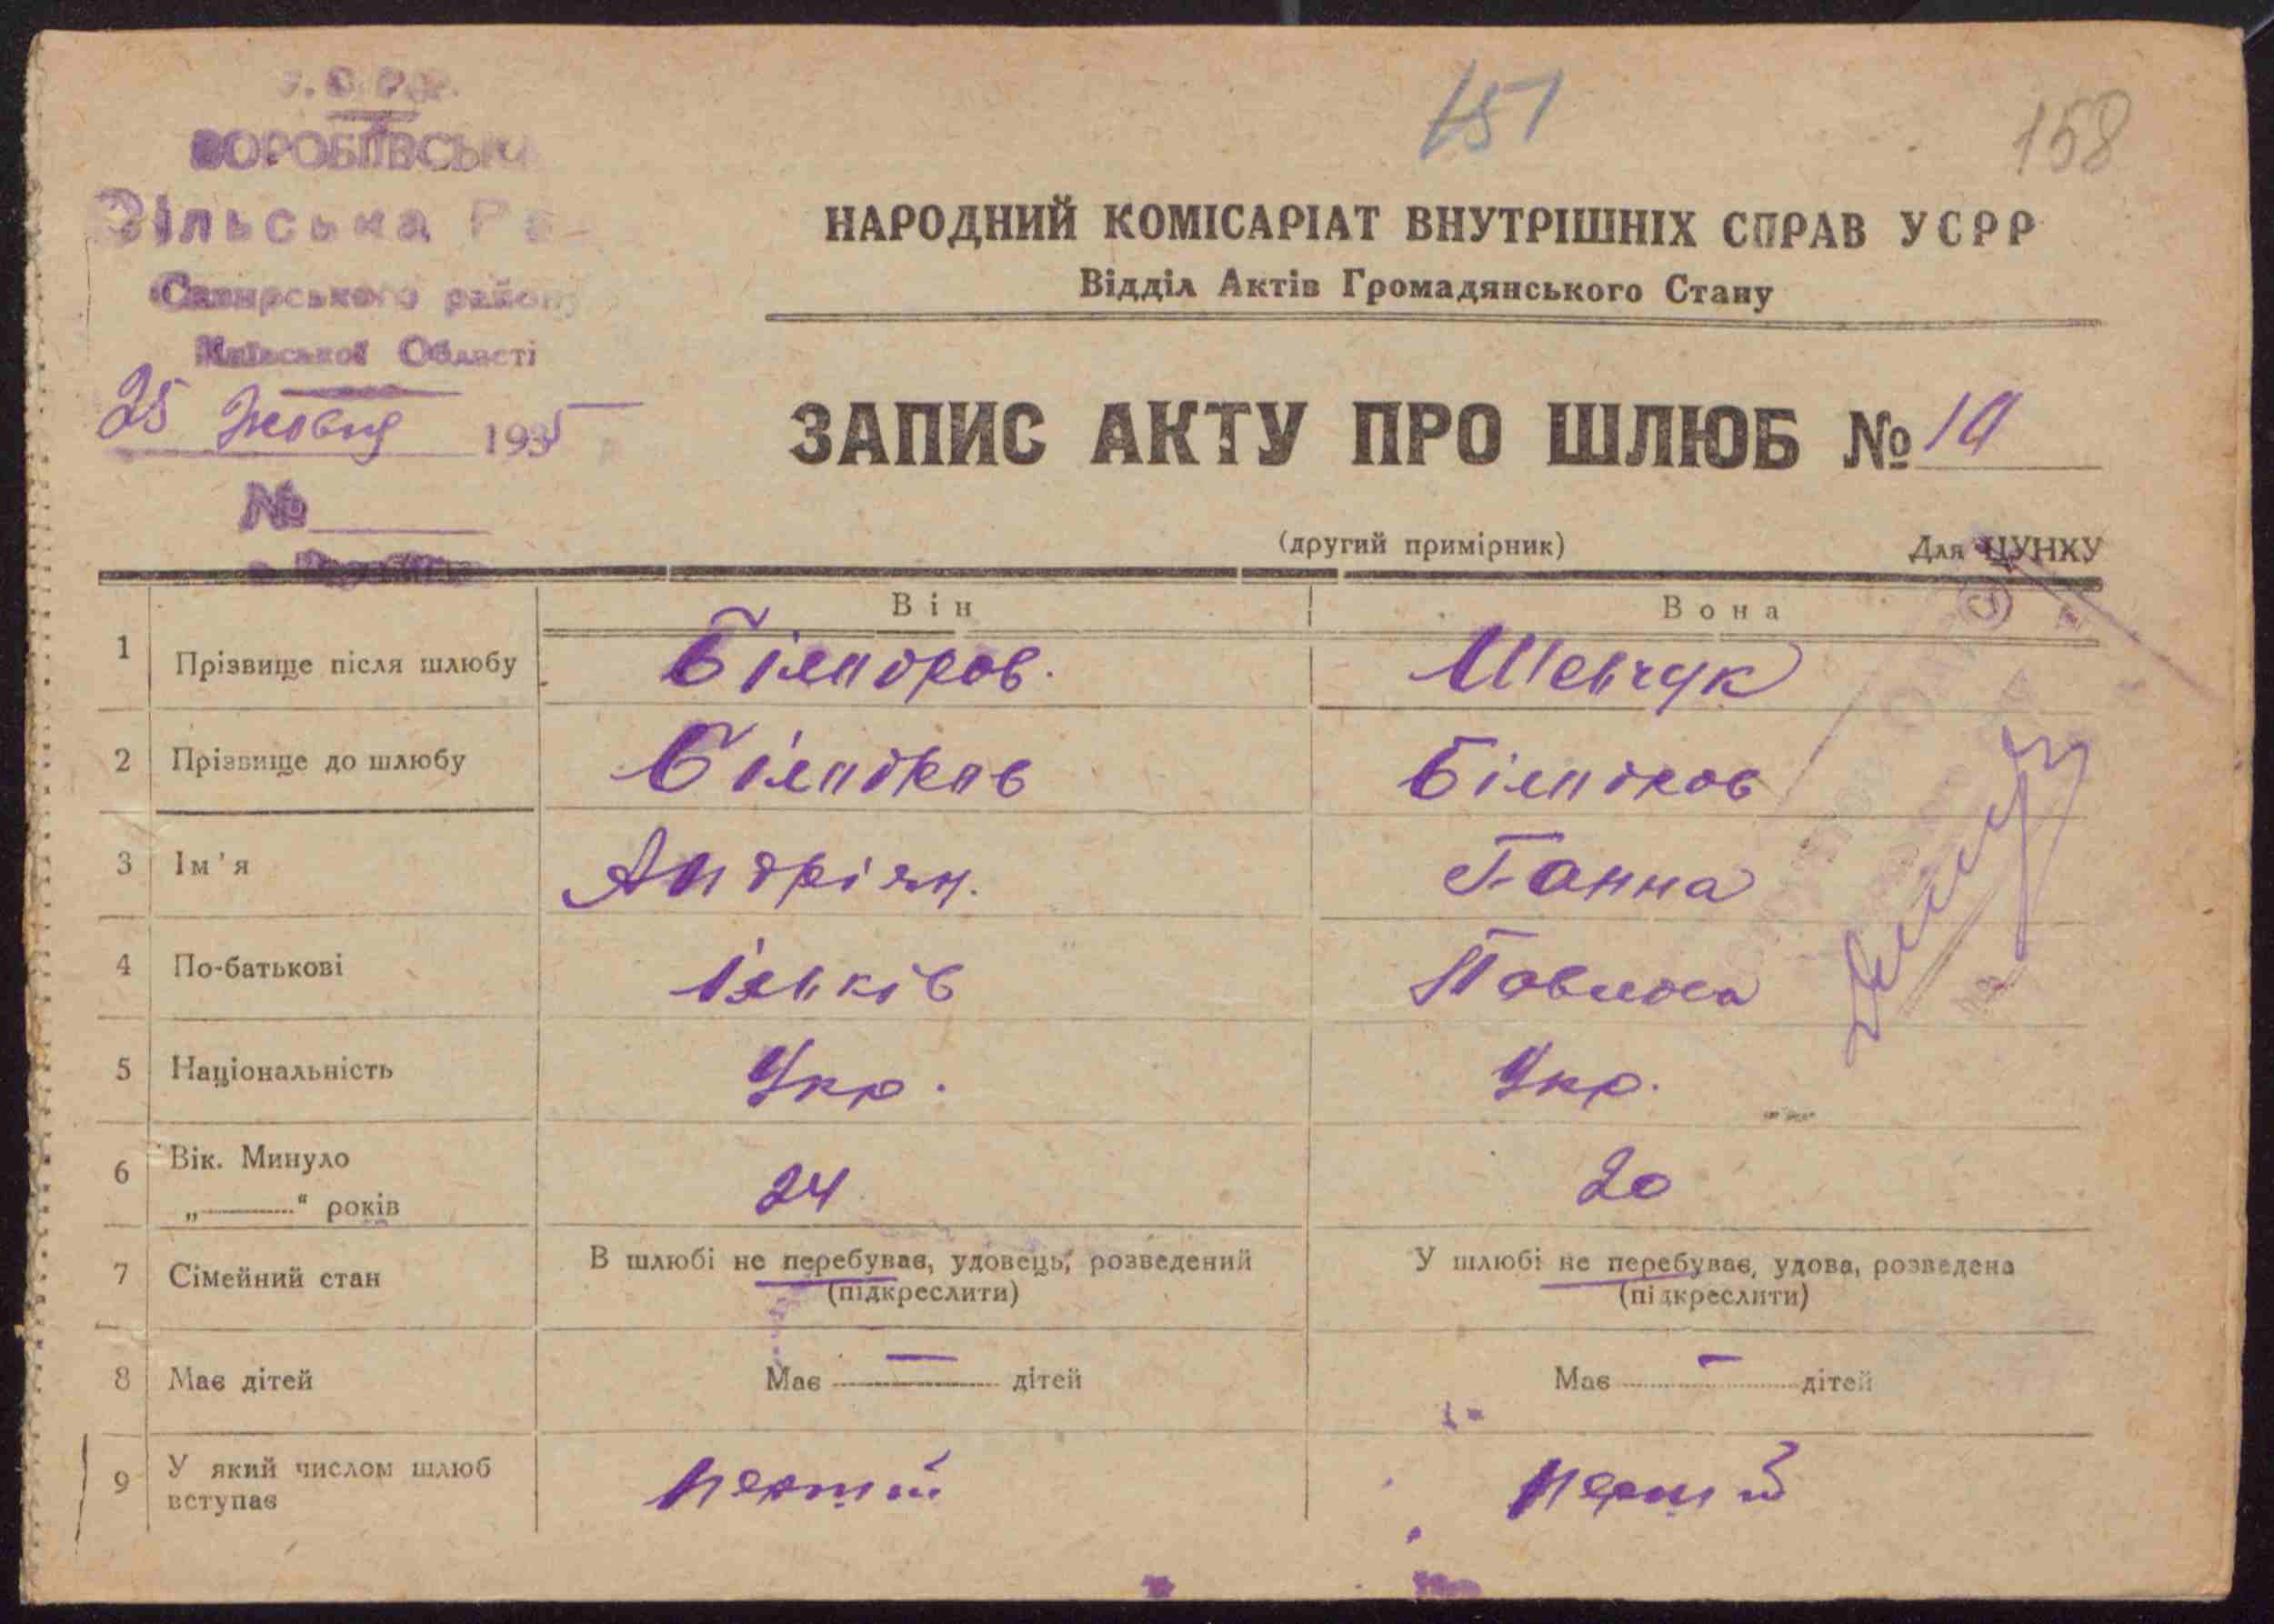 151
158
ВОРОБІЇВСЬКА
Сільська Ра
Сквирського району
Київської Області
25 Жовтня 1935
№
НАРОДНИЙ КОМІСАРІАТ ВНУТРІШНІХ СПРАВ УСРР
Відділ Актів Громадянського Стану
ЗАПИС АКТУ ПРО ШЛЮБ №
(другий примірник) Для ЦУНХУ
Він Вона
1 Прізвище після шлюбу Шевчук
2 Прізвище до шлюбу
3 Ім'я Андріян. Ганна
4 По-батькові
5 Національність Укр. Укр.
6 Вік. Минуло 24 20
„ “ років
7 Сімейний стан В шлюбі не перебуває, удовець, розведений У шлюбі не перебуває, удова, розведена
(підкреслити) (підкреслити)
8 Має дітей Має — дітей Має — дітей
9 У який числом шлюб перший перший
вступає